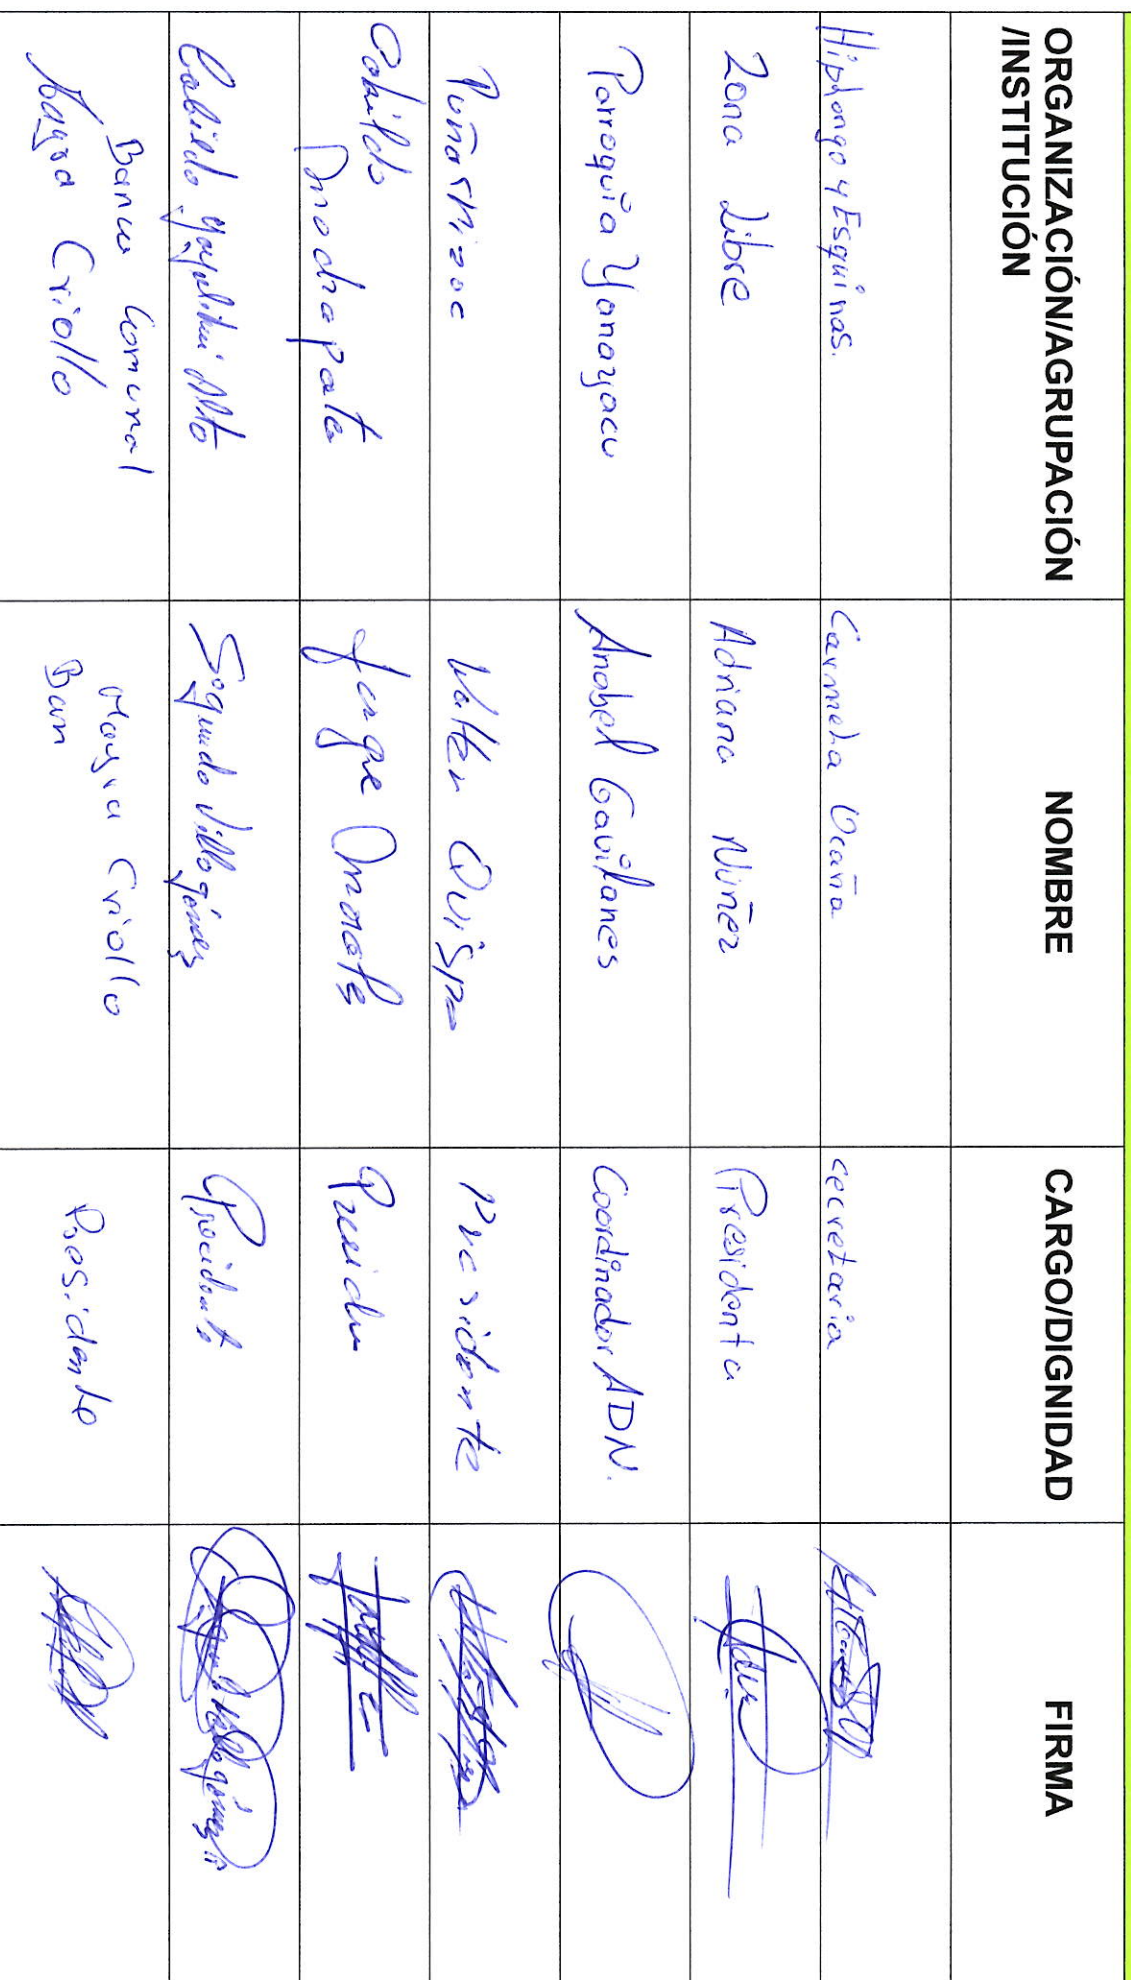 ORGANIZACIÓN/AGRUPACIÓN /INSTITUCIÓN
NOMBRE
CARGO/DIGNIDAD
FIRMA
Hipolongo y Esquinas.
Carmela Ocaña
cecretaria
Zona Libre
Adriana Núñez
Presidenta
Parroquia Yanayacu
Anabel Gavilanes
Coordinador ADN.
Puñachizac
Walter Quispe
Presidente
Cabildo
Jorge
Cabildo Alto
Segundo Villagómez
Presidente
Banco Comunal
Mayra Criollo
Mayra Criollo
Presidente